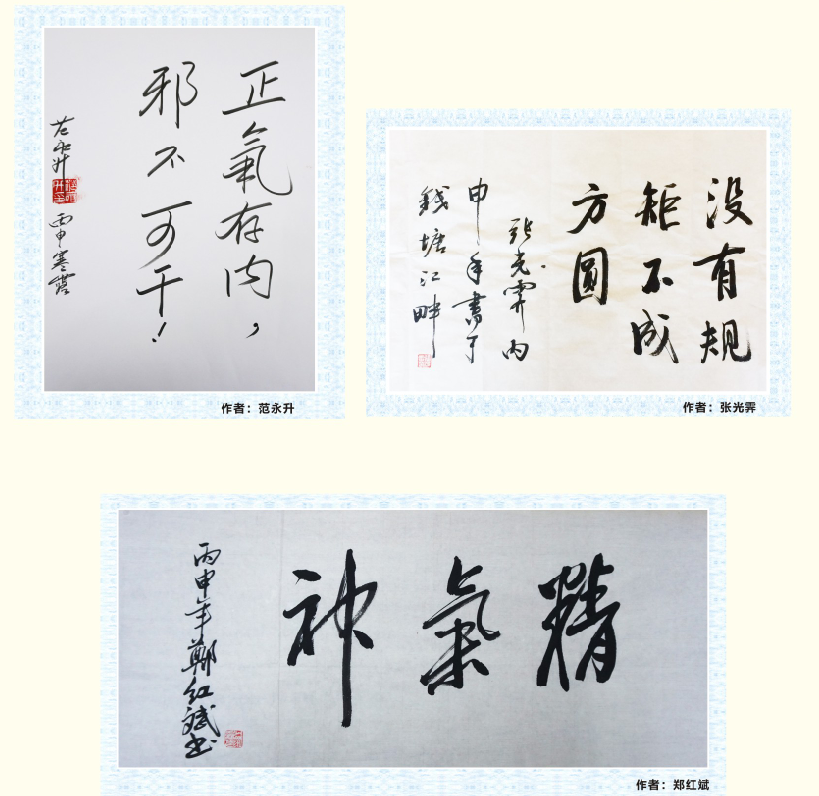 正氣存内，
邪不可干！
范永升
丙申寒露
作者：范永升
没有规
矩不成
方圓
张光霁 丙
申年書于
錢塘江畔
作者：张光霁
精氣神
丙申年鄭红斌书
作者：郑红斌